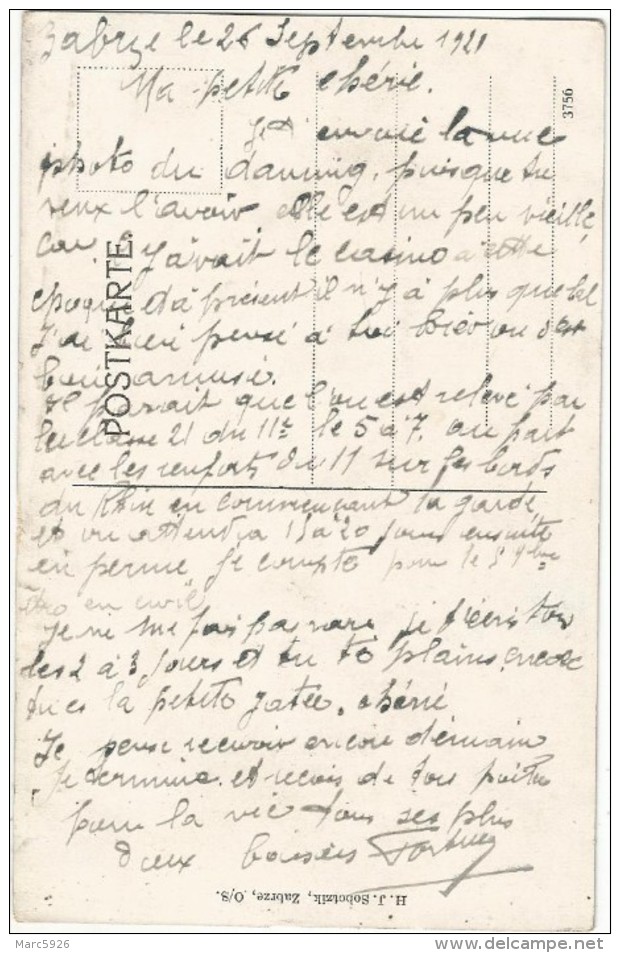 Zabrze le 26 Septembre 1921
Ma petite chérie.
Je t'envoie la vue
photo du dancing, puisque tu
veux l'avoir elle est un peu vieille,
car il y avait le casino à cette
époque et à présent il n'y à plus que bal
J'ai bien pensé à toi bier on s'est
bien amusé.
Il parait que l'on est relevé par
la classe 21 du 11e le 5 à 7. on part
avec les renforts du 11 sur les bords
du Rhin en commençant la garde,
et on attendra 15 à 20 jours ensuite
en perme je compte pour le 5 9bre
être en civil
Je ne me fais pas rare, je t'écris tous
les 2 à 3 jours et tu te plains, encore
tu es la petite gatée, chérie
Je pense recevoir encore demain
Je termine et recois de ton
pour la vie tous ses plus
doux baisers
POSTKARTE.
3756
H. J. Sobotzik, Zabrze, O/S.
Marc5926
www.delcampe.net